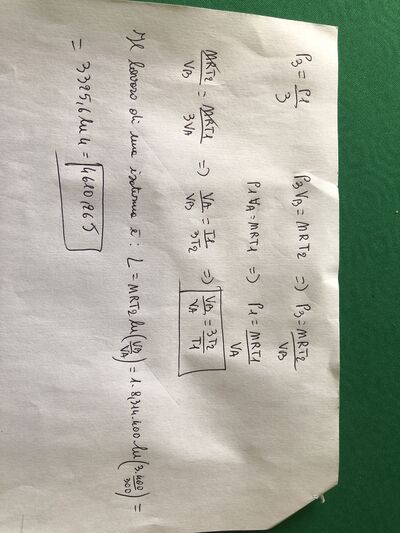 P3 = P1/3 P3VB = MRT2 => P3 = MRT2/VB
P1VA = MRT1 => P1 = MRT1/VA
MRT2/VB = MRT1/3VA => VA/VB = T1/3T2 => VB/VA = 3T2/T1
Il lavoro di una isoterma è: L = MRT2 ln(VB/VA) = 1·8,314·400 ln(3·400/300) =
= 3325,6 ln 4 = 4610,26J